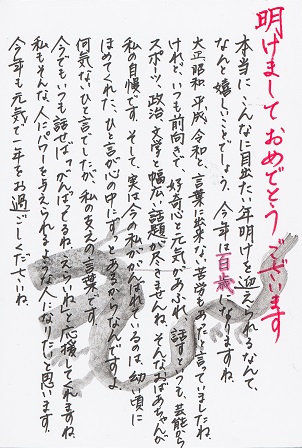 明けまして おめでとう ございます
本当に、こんなに目出たい年明けを迎えられるなんて、
なんと嬉しいことでしょう。今年は百歳になりますね。
大正昭和平成令和と、言葉に出来ない苦労もあったと言っていましたね。
けれど、いつも前向きで、好奇心と元気があふれ、話すといつも、芸能から
スポーツ、政治、文学と幅広い話題が尽きませんね。そんなおばあちゃんが
私の自慢です。そして、実は今の私ががんばれているのは、幼い頃に
ほめてくれた、ひと言が心の中にずっとあるからなんですよ。
何気ないひと言でしたが、私の支えの言葉です。
今でもいつも話せば「がんばってるね、えらいね」と応援してくれますね。
私もそんな、人にパワーを与えられるような人になりたいと思います。
今年も元気で一年をお過ごしくださいね。